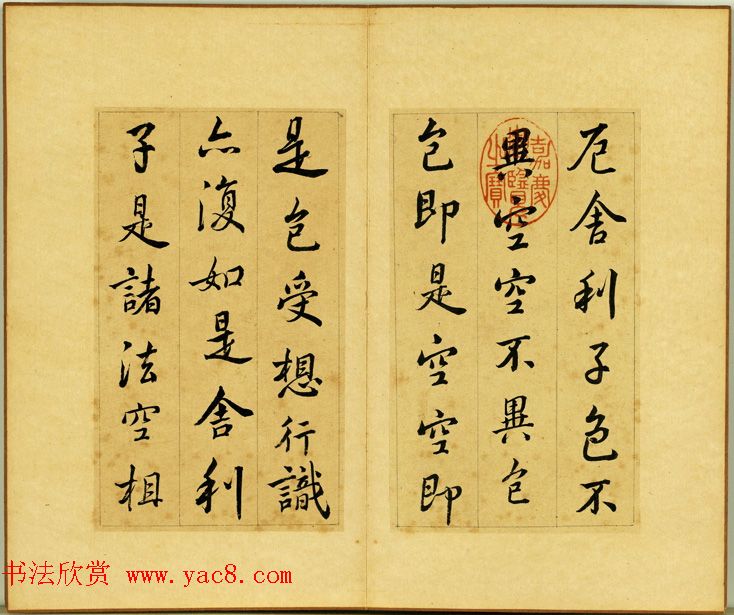 厄舍利子色不
異空空不異色
色即是空空即
是色受想行識
亦復如是舍利
子是諸法空相
嘉慶御覽之寶
书法欣赏 www.yac8.com